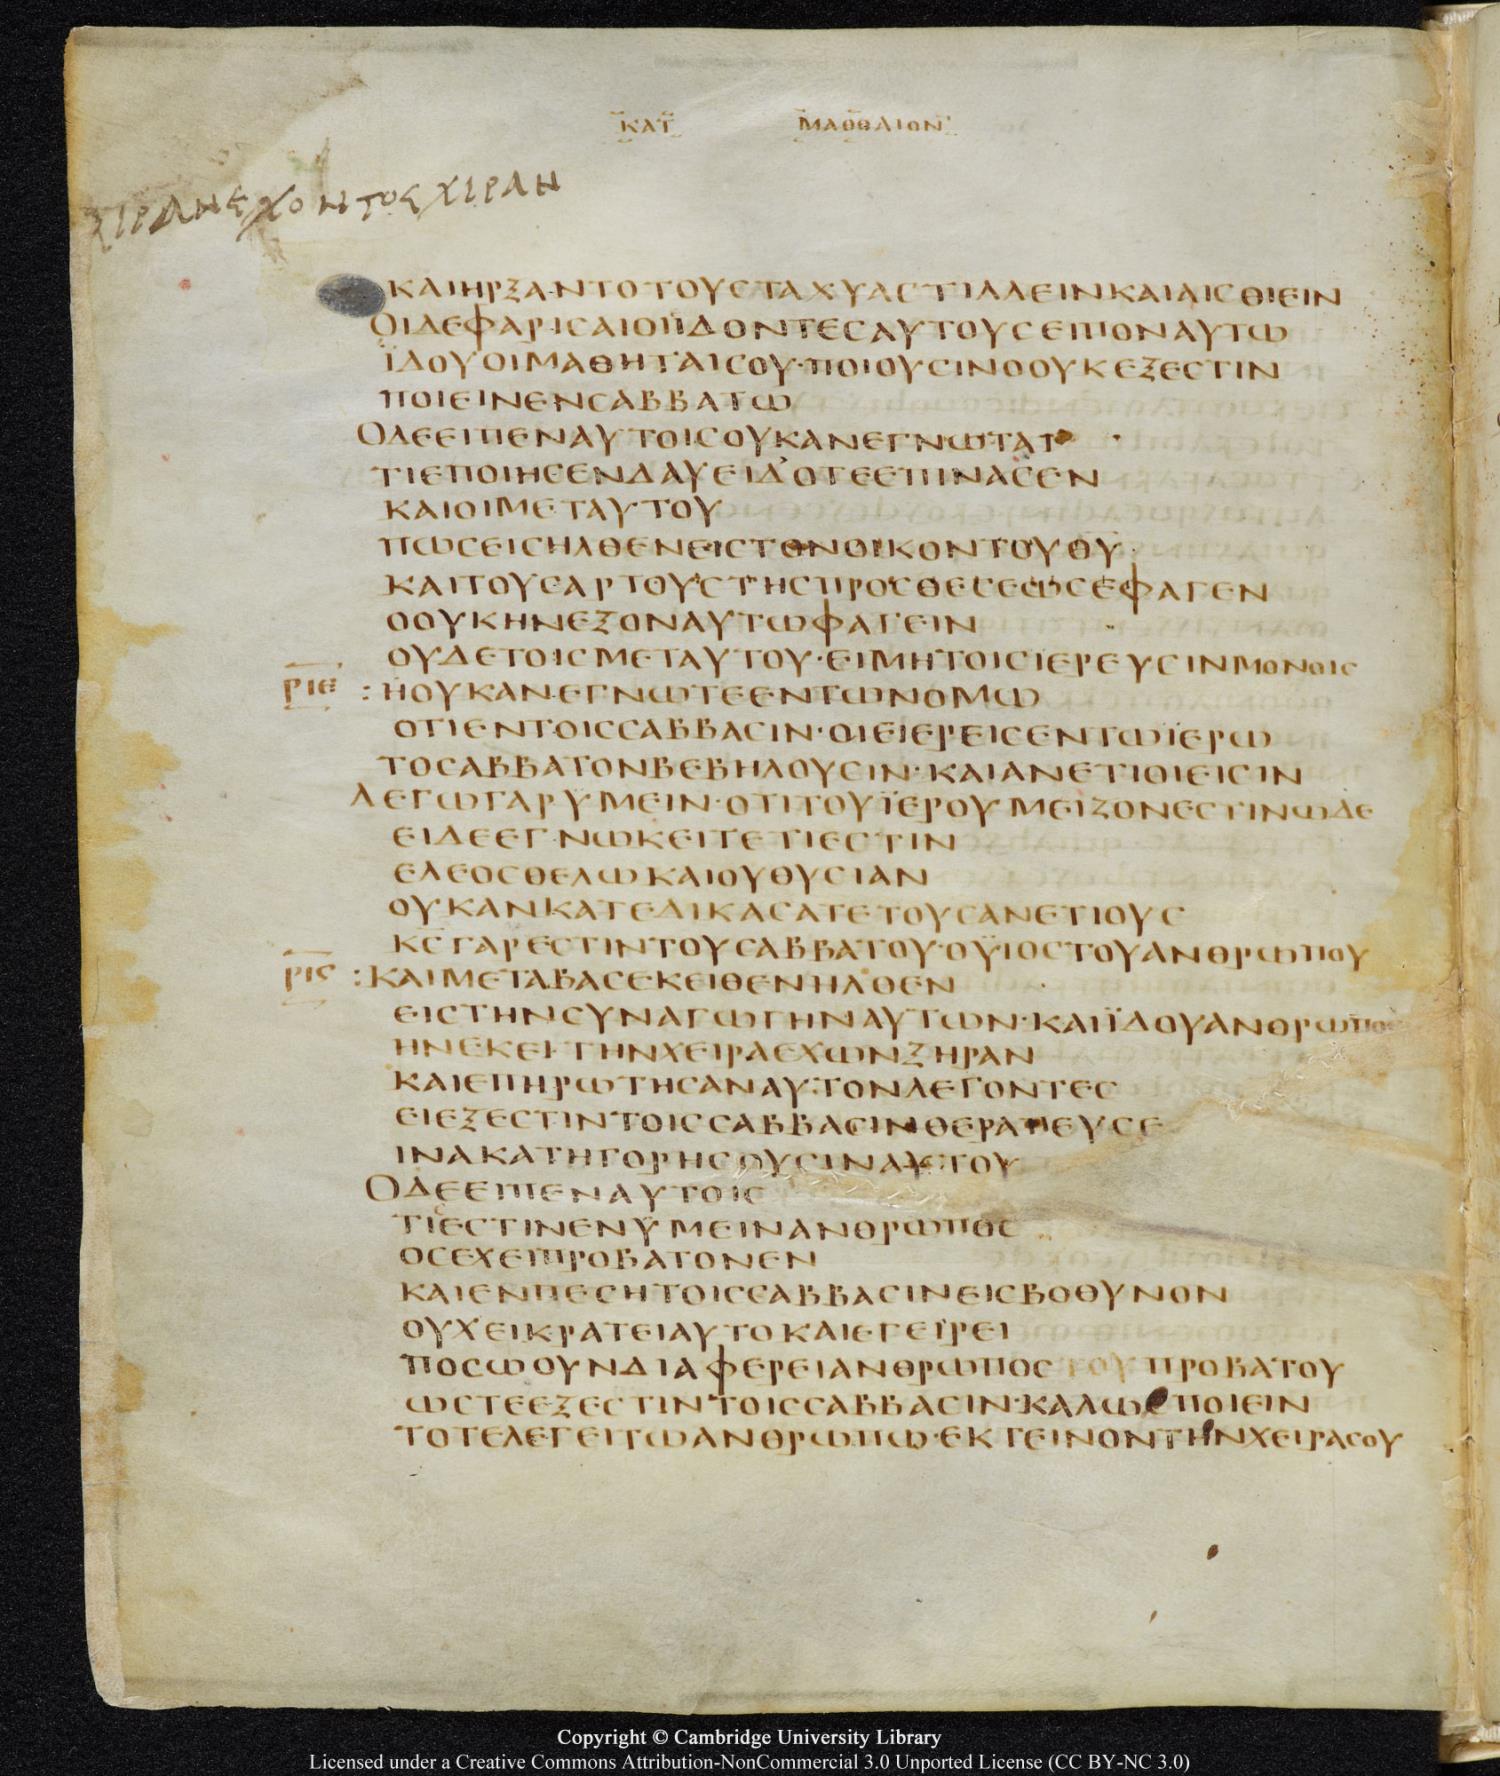 ΚΑΤ ΜΑΘΘΑΙΟΝ
ΧΙΡΑΝΕΧΟΝΤΟΣΧΙΡΑΝ
ΚΑΙΗΡΞΑΝΤΟΤΟΥϹΤΑΧΥΑϹΤΙΛΛΕΙΝΚΑΙΑΙϹΘΙΕΙΝ
ΟΙΔΕΦΑΡΙϹΑΙΟΙΪΔΟΝΤΕϹΑΥΤΟΥϹΕΙΠΟΝΑΥΤΩ
ΪΔΟΥΟΙΜΑΘΗΤΑΙϹΟΥ·ΠΟΙΟΥϹΙΝΟΟΥΚΕΞΕϹΤΙΝ
ΠΟΙΕΙΝΕΝϹΑΒΒΑΤΩ
ΟΔΕΕΙΠΕΝΑΥΤΟΙϹΟΥΚΑΝΕΓΝΩΤΑΙ
ΤΙΕΠΟΙΗϹΕΝΔΑΥΕΙΔ᾿ΟΤΕΕΠΙΝΑϹΕΝ
ΚΑΙΟΙΜΕΤΑΥΤΟΥ
ΠΩϹΕΙϹΗΛΘΕΝΕΙϹΤΟΝΟΙΚΟΝΤΟΥΘΥ
ΚΑΙΤΟΥϹΑΡΤΟΥϹΤΗϹΠΡΟϹΘΕϹΕΩϹΕΦΑΓΕΝ
ΟΟΥΚΗΝΕΞΟΝΑΥΤΩΦΑΓΕΙΝ
ΟΥΔΕΤΟΙϹΜΕΤΑΥΤΟΥ·ΕΙΜΗΤΟΙϹΙΕΡΕΥϹΙΝΜΟΝΟΙϹ
ΡΙΕ :ΗΟΥΚΑΝΕΓΝΩΤΕΕΝΤΩΝΟΜΩ
ΟΤΙΕΝΤΟΙϹϹΑΒΒΑϹΙΝ·ΟΙΕΙΕΡΕΙϹΕΝΤΩΪΕΡΩ
ΤΟϹΑΒΒΑΤΟΝΒΕΒΗΛΟΥϹΙΝ·ΚΑΙΑΝΕΤΙΟΙΕΙϹΙΝ
ΛΕΓΩΓΑΡΥΜΕΙΝ·ΟΤΙΤΟΥΪΕΡΟΥΜΕΙΖΟΝΕϹΤΙΝΩΔΕ
ΕΙΔΕΕΓΝΩΚΕΙΤΕΤΙΕϹΤΙΝ
ΕΛΕΟϹΘΕΛΩΚΑΙΟΥΘΥϹΙΑΝ
ΟΥΚΑΝΚΑΤΕΔΙΚΑϹΑΤΕΤΟΥϹΑΝΕΤΙΟΥϹ
ΚϹΓΑΡΕϹΤΙΝΤΟΥϹΑΒΒΑΤΟΥ·ΟΥΪΟϹΤΟΥΑΝΘΡΩΠΟΥ
ΡΙϚ :ΚΑΙΜΕΤΑΒΑϹΕΚΕΙΘΕΝΗΛΘΕΝ
ΕΙϹΤΗΝϹΥΝΑΓΩΓΗΝΑΥΤΩΝ·ΚΑΙΪΔΟΥΑΝΘΡΩΠΟϹ
ΗΝΕΚΕΙΤΗΝΧΕΙΡΑΕΧΩΝΞΗΡΑΝ
ΚΑΙΕΠΗΡΩΤΗϹΑΝΑΥΤΟΝΛΕΓΟΝΤΕϹ
ΕΙΕΞΕϹΤΙΝΤΟΙϹϹΑΒΒΑϹΙΝΘΕΡΑΠΕΥϹΕ
ΙΝΑΚΑΤΗΓΟΡΗϹΟΥϹΙΝΑΥΤΟΥ
ΟΔΕΕΙΠΕΝΑΥΤΟΙϹ
ΤΙΕϹΤΙΝΕΝΥΜΕΙΝΑΝΘΡΩΠΟϹ
ΟϹΕΧΕΙΠΡΟΒΑΤΟΝΕΝ
ΚΑΙΕΝΠΕϹΗΤΟΙϹϹΑΒΒΑϹΙΝΕΙϹΒΟΘΥΝΟΝ
ΟΥΧΕΙΚΡΑΤΕΙΑΥΤΟΚΑΙΕΓΕΙΡΕΙ
ΠΟϹΩΟΥΝΔΙΑΦΕΡΕΙΑΝΘΡΩΠΟϹΤΟΥΠΡΟΒΑΤΟΥ
ΩϹΤΕΕΞΕϹΤΙΝΤΟΙϹϹΑΒΒΑϹΙΝ·ΚΑΛΩϹΠΟΙΕΙΝ
ΤΟΤΕΛΕΓΕΙΤΩΑΝΘΡΩΠΩ·ΕΚΤΕΙΝΟΝΤΗΝΧΕΙΡΑϹΟΥ
Copyright © Cambridge University Library
Licensed under a Creative Commons Attribution-NonCommercial 3.0 Unported License (CC BY-NC 3.0)